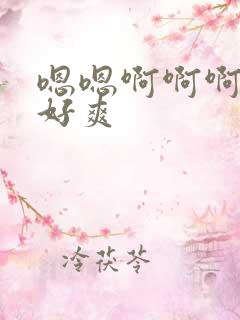 嗯嗯啊啊啊
好爽
冷茯苓